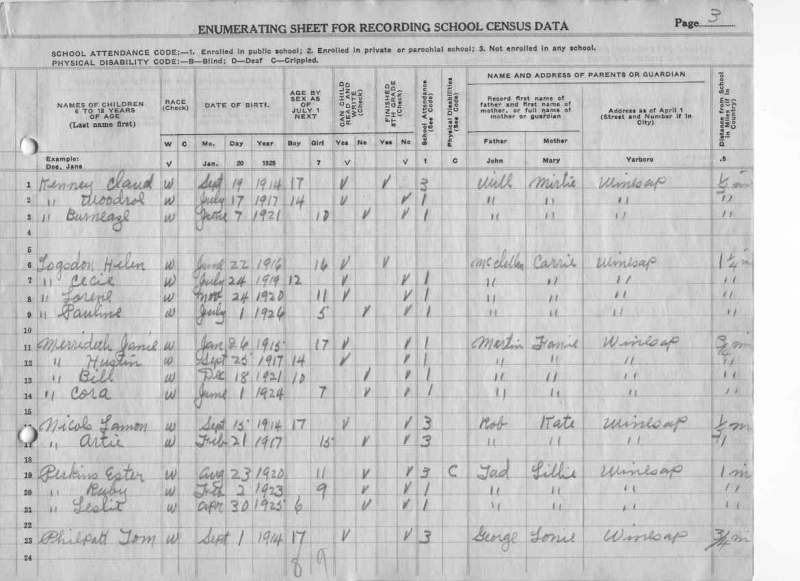 Page 3
ENUMERATING SHEET FOR RECORDING SCHOOL CENSUS DATA
SCHOOL ATTENDANCE CODE:—1. Enrolled in public school; 2. Enrolled in private or parochial school; 3. Not enrolled in any school.
PHYSICAL DISABILITY CODE:—B—Blind; D—Deaf C—Crippled.
NAMES OF CHILDREN 6 TO 18 YEARS OF AGE (Last name first)
RACE (Check)
W C
DATE OF BIRTH.
Mo. Day Year
AGE BY SEX AS OF JULY 1 NEXT
Boy Girl
CAN CHILD READ AND WRITE (Check)
Yes No
FINISHED 8TH GRADE (Check)
Yes No
School Attendance (See Code)
Physical Disabilities (See Code)
NAME AND ADDRESS OF PARENTS OR GUARDIAN
Record first name of father and first name of mother, or full name of mother or guardian
Father Mother
Address as of April 1 (Street and Number if in City)
Distance from School in Miles (if in Country)
Example: Doe, Jane V Jan. 20 1928 7 V V 1 C John Mary Yarboro .5
1 Kenney Claud W Sept 19 1914 17 V V 3 Will Mirtie Winesap 1/2 m
2 " Woodrol W July 17 1917 14 V V 1 " " " "
3 " Burneaze W June 7 1921 10 V V 1 " " " "
4
5
6 Logsdon Helen W June 22 1916 16 V V McClellan Carrie Winesap 1 1/4 m
7 " Cecie W July 24 1919 12 V V 1 " " " "
8 " Lorene W Nov 24 1920 11 V V 1 " " " "
9 " Pauline W July 1 1926 5 V V 1 " " " "
10
11 Merrideth Janie W Jan 26 1915 17 V V 1 Martin Fanie Winesap m
12 " Hustin W Sept 25 1917 14 V V 1 " " " "
13 " Bill W Dec 18 1921 10 V V 1 " " " "
14 " Cora W June 1 1924 7 V V 1 " " " "
15
Nicols Lamon W Sept 15 1914 17 V V 3 Rob Kate Winesap 1/2 m
" Artie W Feb 21 1917 15 V V 3 " " " "
18
19 Perkins Ester W Aug 23 1920 11 V V 3 C Tad Lillie Winesap 1 m
20 " Ruby W Feb 2 1923 9 V V 1 " " " "
21 " Leslit W Apr 30 1925 6 V V 1 " " " "
22
23 Philpatt Tom W Sept 1 1914 17 V V 3 George Lonie Winesap 3/4 m
24 8 9